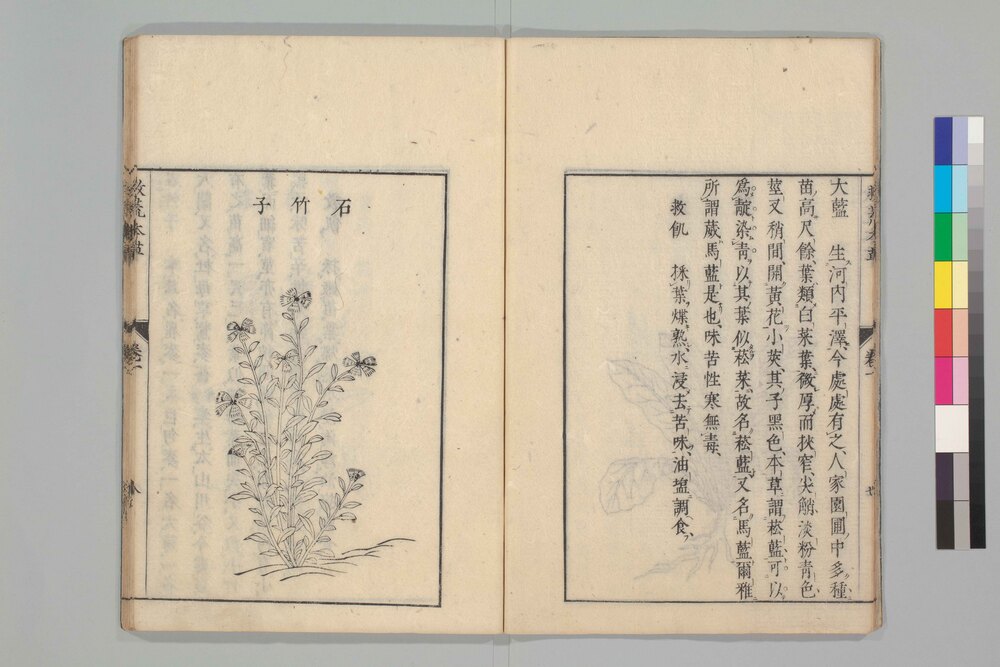 大藍　生河内平澤今處處有之人家園圃中多種
苗高尺餘葉類白菜葉微厚而狹窄尖䚩淡粉青色
莖叉稍間開黃花小莢其子黑色本草謂菘藍可以
爲靛染青以其葉似菘菜故名菘藍又名馬藍爾雅
所謂葴馬藍是也味苦性寒無毒
救飢　採葉煠熟水浸去苦味油塩調食
石竹子
救荒本草
卷一